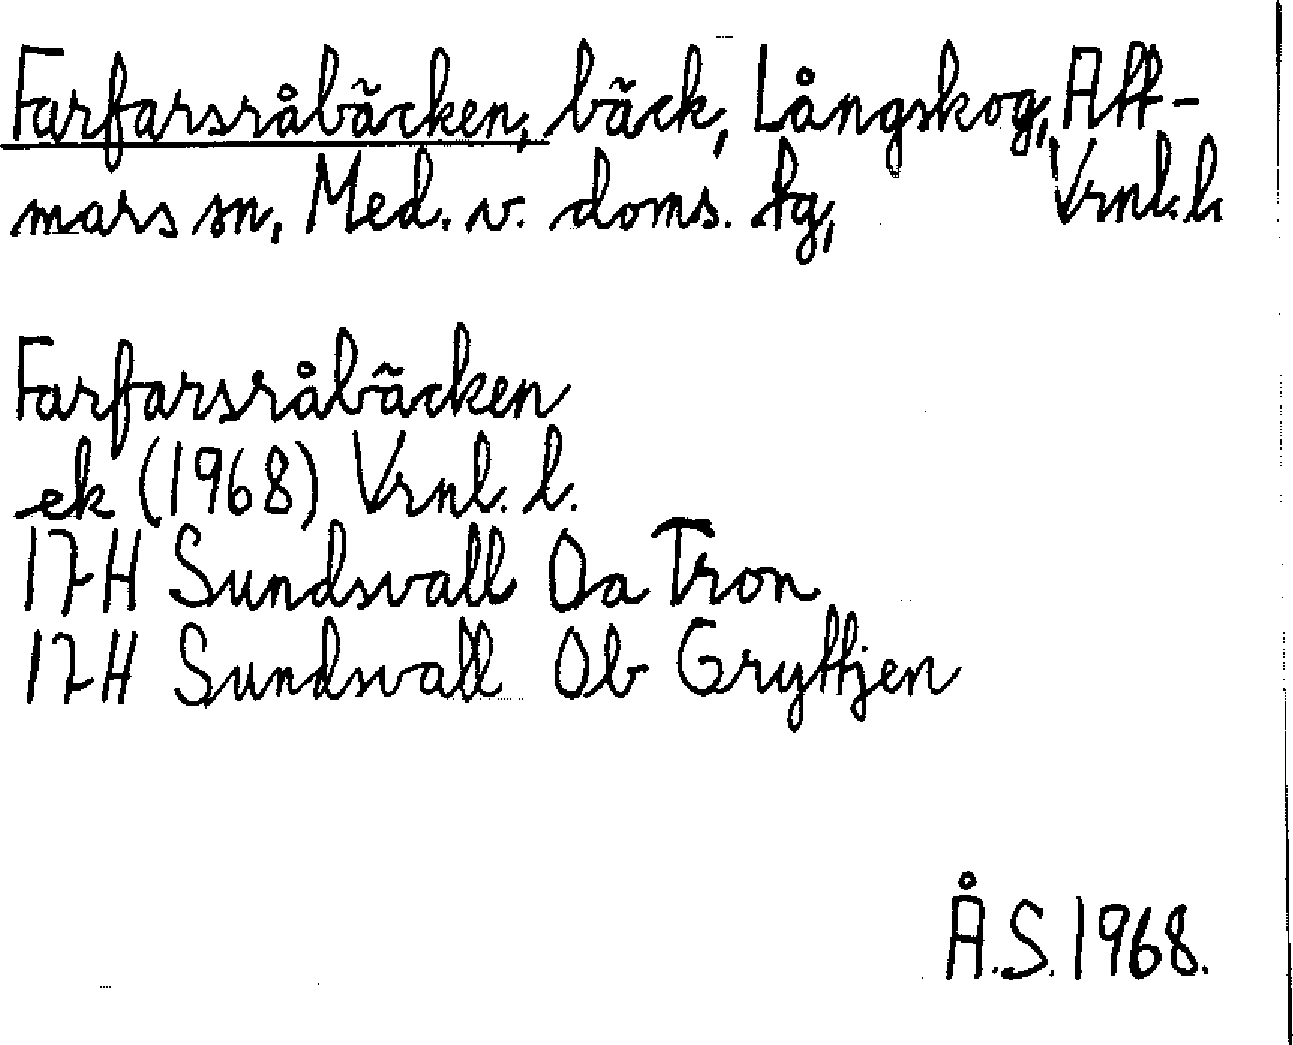 Farfarsråbäcken, bäck, Långskog, Att-
mars sn, Med. v. doms. tg, Vrnl. l.
Farfarsråbäcken
ek (1968) Vrnl. l.
17H Sundsvall 0a Tron
17H Sundsvall 0b Gryttjen
Å.S. 1968.